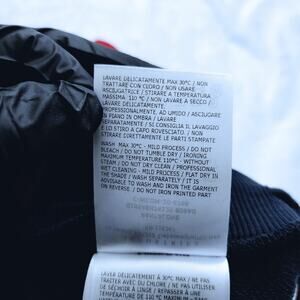 LAVARE DELICATAMENTE MAX 30°C / NON
TRATTARE CON CLORO / NON USARE
ASCIUGATRICE / STIRARE A TEMPERATURA
MASSIMA 110 °C / NON LAVARE A SECCO /
LAVARE DELICATAMENTE.
PROFESSIONALMENTE. AD UMIDO / ASCIUGARE
IN PIANO IN OMBRA / LAVARE
SEPARATAMENTE / SI CONSIGLIA IL LAVAGGIO
E LO STIRO A CAPO ROVESCIATO. / NON
STIRARE DIRETTAMENTE LE PARTI STAMPATE
WASH MAX 30°C - MILD PROCESS / DO NOT
BLEACH / DO NOT TUMBLE DRY / IRONING
MAXIMUM TEMPERATURE 110°C - WITHOUT
STEAM / DO NOT DRY CLEAN / PROFESSIONAL
WET CLEANING - MILD PROCESS / FLAT DRY IN
THE SHADE / WASH SEPARATELY / IT IS
ADVISABLE TO WASH AND IRON THE GARMENT
ON REVERSE / DO NOT IRON PRINTED PART
LAVER DÉLICATEMENT À 30°C MAX / NE PAS
TRAITER AVEC DU CHLORE / NE PAS UTILISER
DE SÉCHOIR À LINGE / REPASSER À UNE
TEMPÉRATURE DE 110 °C MAXIMUM